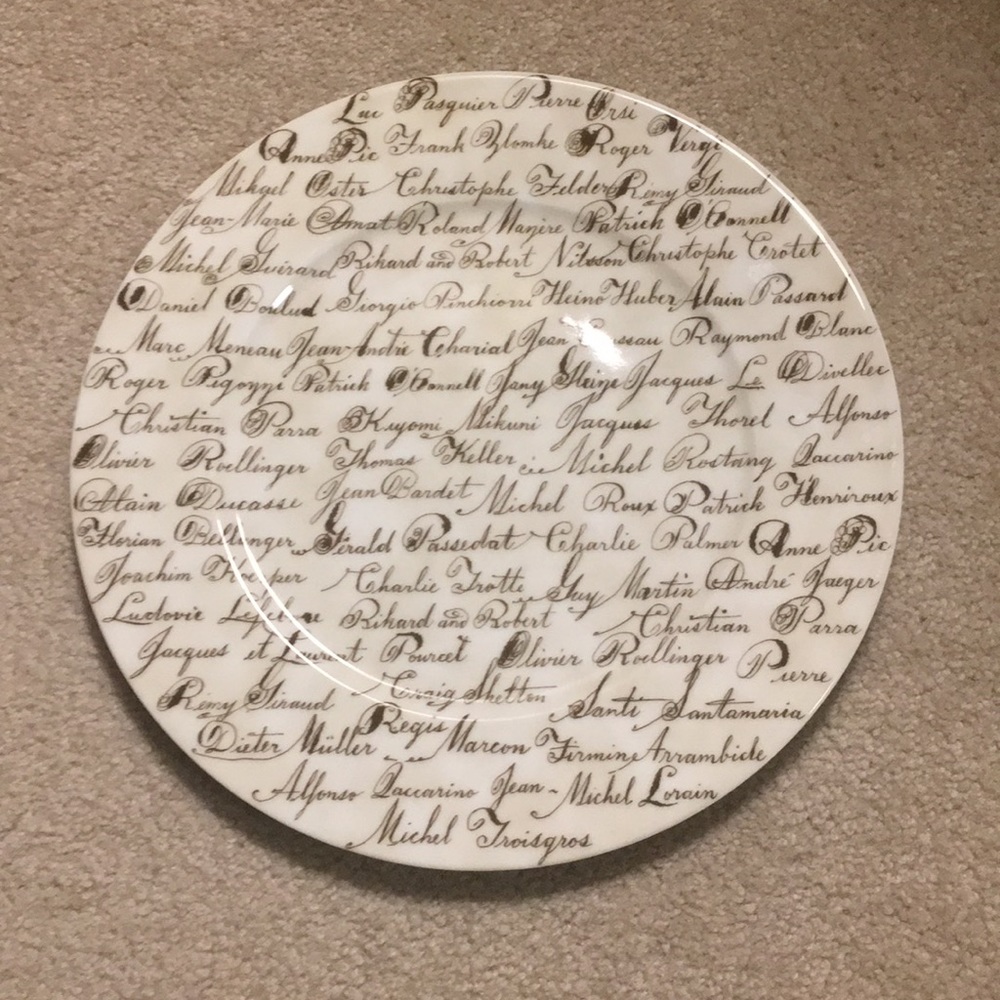 Luc Pasquier Pierre Orsi
Anne Pic Frank Zlomke Roger Vergé
Mikael Öster Christophe Felder Rémy Giraud
Jean-Marie Amat Roland Mazère Patrick O'Connell
Michel Guérard Rikard and Robert Nilsson Christophe Crotet
Daniel Boulud Giorgio Pinchiorri Heino Huber Alain Passard
Marc Meneau Jean-André Charial Jean Raymond Blanc
Roger Pigozzi Patrick O'Connell Jany Gleize Jacques Le Divellec
Christian Parra Kiyomi Mikuni Jacques Thorel Alfonso
Olivier Roellinger Thomas Keller Michel Rostang Iaccarino
Alain Ducasse Jean Bardet Michel Roux Patrick Henriroux
Florian Bellanger Gérald Passedat Charlie Palmer Anne Pic
Joachim Koerper Charlie Trotte Guy Martin André Jaeger
Ludovic Lefebvre Rikard and Robert Christian Parra
Jacques et Laurent Pourcel Olivier Roellinger Pierre
Rémy Giraud Craig Shelton Santi Santamaria
Dieter Müller Régis Marcon Firmin Arrambide
Alfonso Iaccarino Jean-Michel Lorain
Michel Troisgros